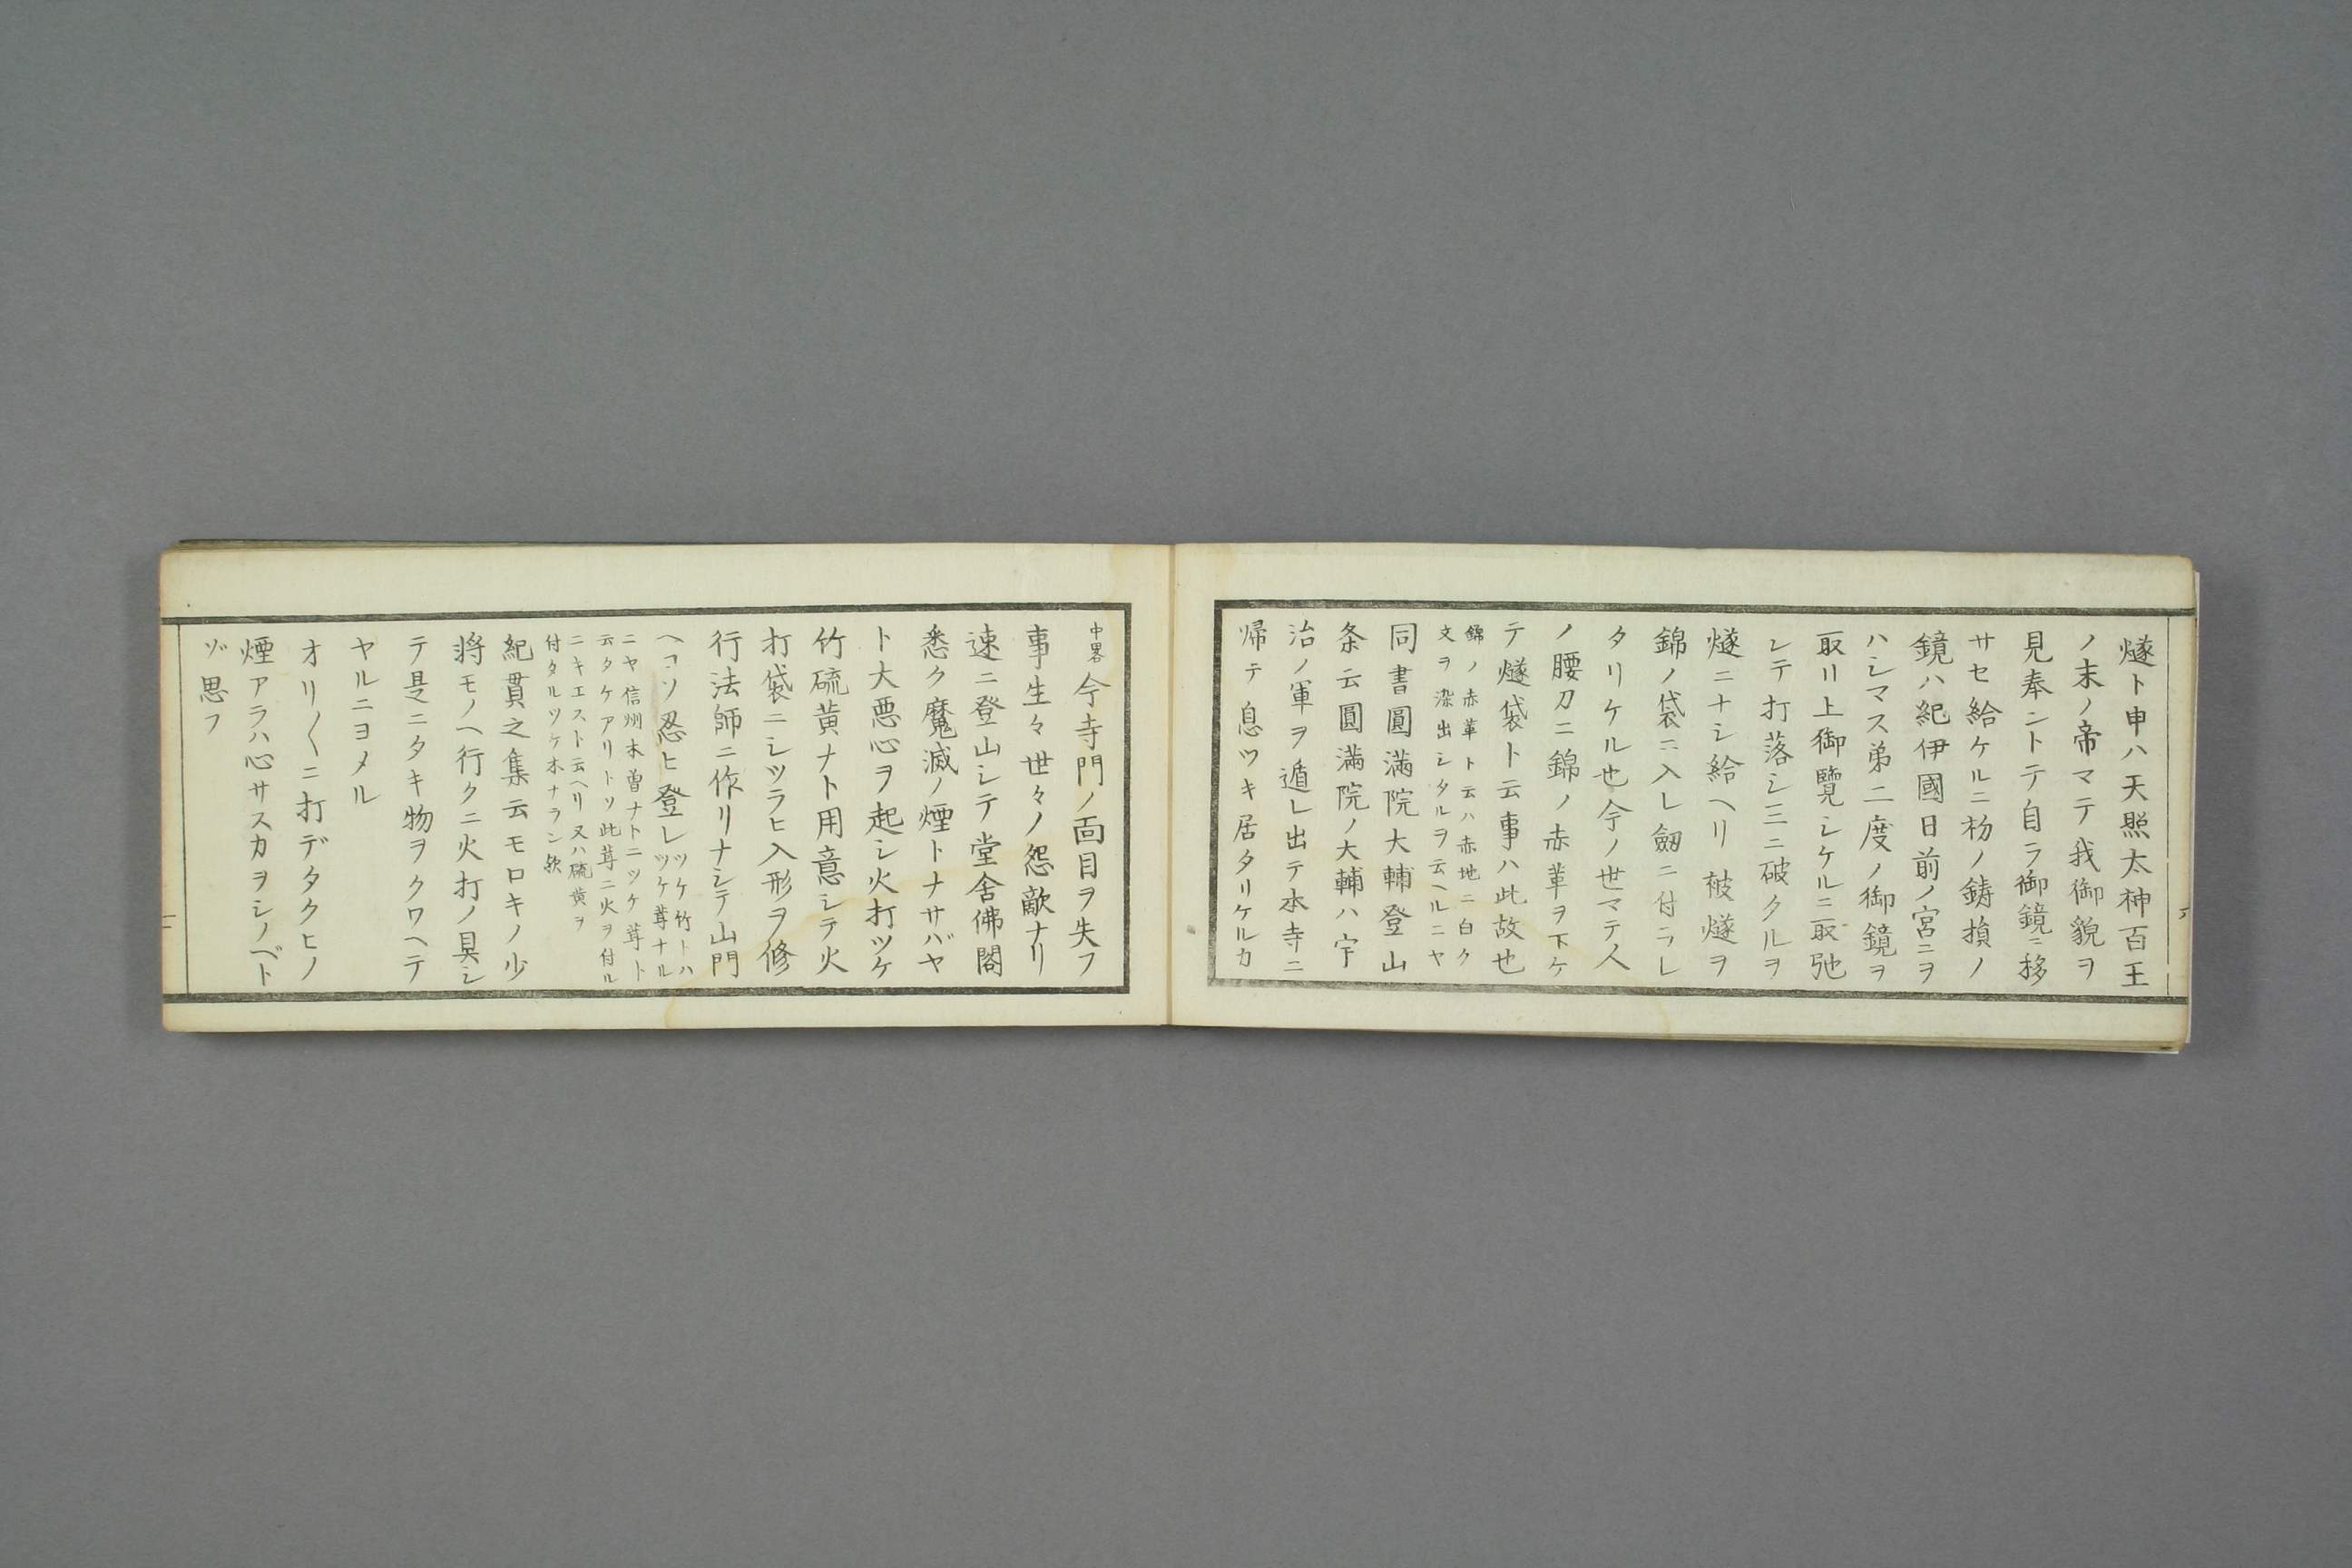 燧ト申ハ天照太神百王
ノ末ノ帝マテ我御貌ヲ
見奉ントテ自ラ御鏡ニ移
サセ給ケルニ初ノ鋳損ノ
鏡ハ紀伊國日前ノ宮ニヲ
ハシマス弟二度ノ御鏡ヲ
取リ上御覽シケルニ取弛
シテ打落シ三ニ破クルヲ
燧ニナシ給ヘリ彼燧ヲ
錦ノ袋ニ入レ劔ニ付ラレ
タリケル也今ノ世マテ人
ノ腰刀ニ錦ノ赤革ヲ下ケ
テ燧袋ト云事ハ此故也
錦ノ赤革ト云ハ赤地ニ白ク
文ヲ染出シタルヲ云ヘルニヤ
同書圓満院大輔登山
条云圓満院ノ大輔ハ宇
治ノ軍ヲ遁レ出テ本寺ニ
帰テ息ツキ居タリケルカ
中畧今寺門ノ面目ヲ失フ
事生々世々ノ怨敵ナリ
速ニ登山シテ堂舍佛閣
悉ク魔滅ノ煙トナサバヤ
ト大悪心ヲ起シ火打ツケ
竹硫黄ナト用意シテ火
打袋ニシツラヒ入形ヲ修
行法師ニ作リナシテ山門
ヘコソ忍ヒ登レ
ツケ竹トハ
ツケ茸ナル
ニヤ信州木曽ナトニツケ茸ト
云タケアリトソ此茸ニ火ヲ付ル
ニキエスト云ヘリ又ハ硫黄ヲ
付タルツケ木ナラン歟
紀貫之集云モロキノ少
将モノヘ行クニ火打ノ具シ
テ是ニタキ物ヲクワヘテ
ヤルニヨメル
オリ〱ニ打デタクヒノ
煙アラハ心サスカヲシノベト
ゾ思フ